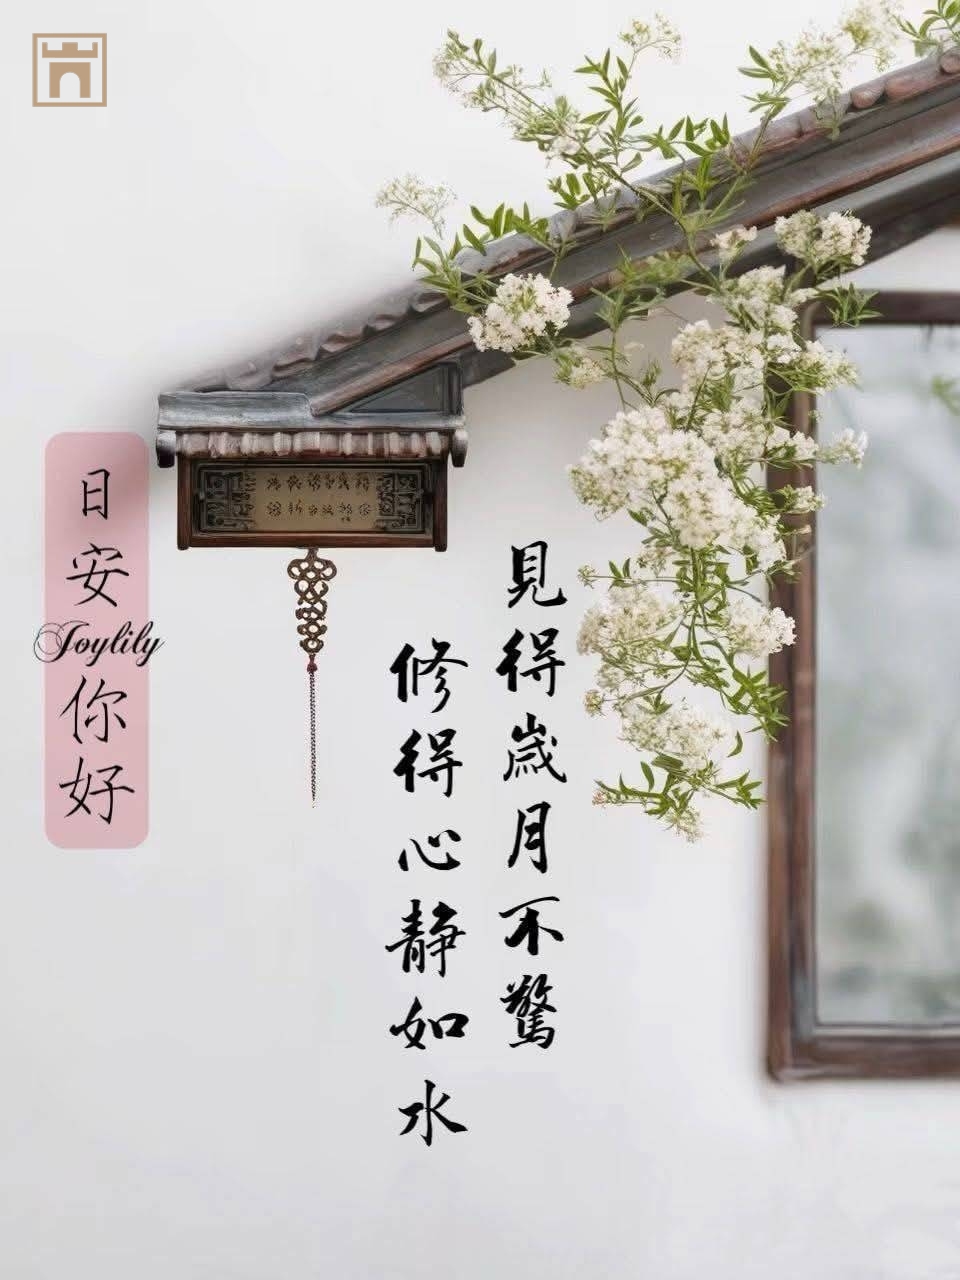 見得歲月不驚
修得心靜如水
日安
Joylily
你好